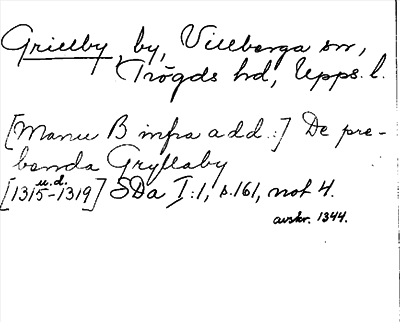 Grillby, by, Villberga sn,
Trögds hd, Upps. l.
[Manu B infra add.:] De pre-
benda Gryllaby
u.d.
[1315-1319] SDa I:1, s.161, not 4.
avskr. 1344.